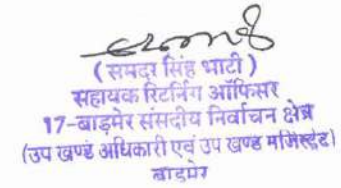 (समदर सिंह भाटी)
सहायक रिटर्निंग ऑफिसर
17-बाड़मेर संसदीय निर्वाचन क्षेत्र
(उप खण्ड अधिकारी एवं उप खण्ड मजिस्ट्रेट)
बाड़मेर